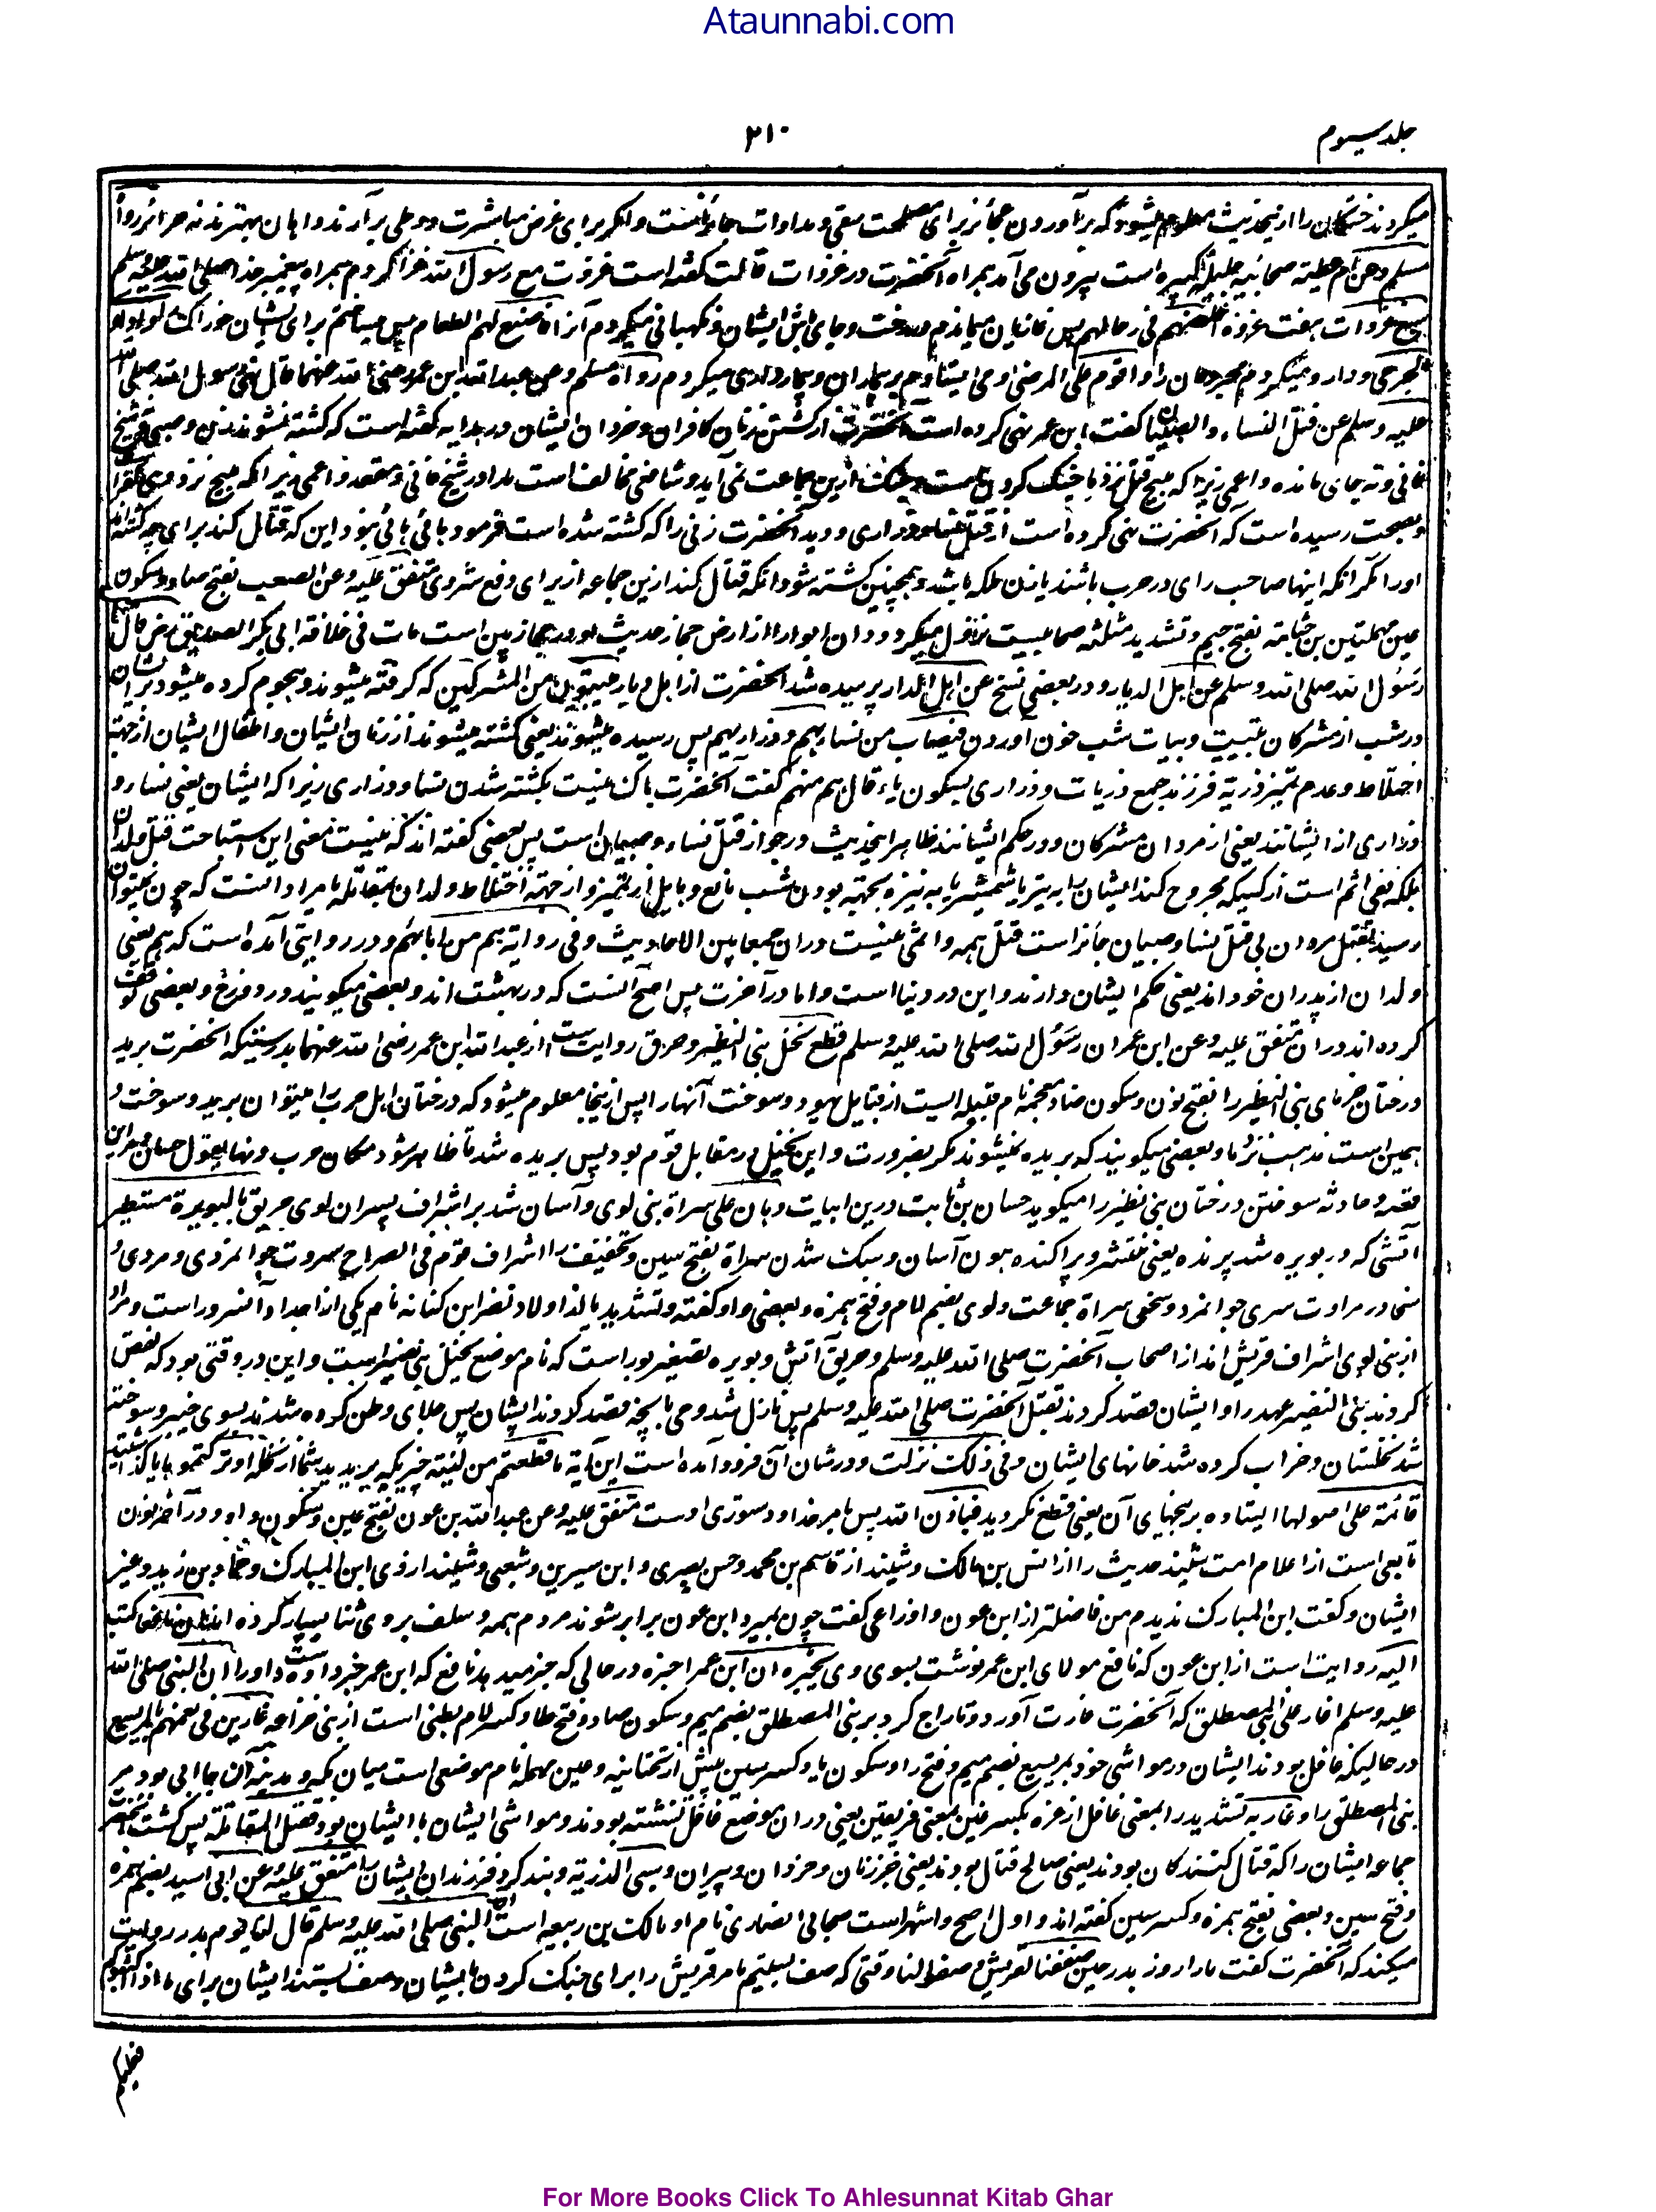 Ataunnabi.com
جلد سیوم
٣١٠
میکردند خستگان را ازینحدیث معلوم میشود که برآوردن عجائز برای مصلحت سقی و مداوات جائز است واگر برای غرض مباشرت ووطی برآرند واماان بهتر ند نه حرائر رواه
مسلم وعن ام عطیة صحابیه جلیلة کبیره است بیرون می آمد همراه آنحضرت در غزوات قالت گفته است غزوت مع رسول الله غزا کردم همراه پیغمبر خدا صلی الله علیه وسلم
سبع غزوات هفت غزوه اخلفهم فی رحالهم پس غازیان میماندم در رخت وجای باش ایشان ونگهبانی میکردم آنرا فاصنع لهم الطعام پس میساختم برای ایشان خوراک
الجرحی ودارو میکردم مجروحان را واقوم علی المرضی ومی ایستادم بر بیماران وبیمارداری میکردم رواه مسلم وعن عبد الله ابن عمر رضی الله عنهما قال نهی رسول الله صلی الله
علیه وسلم عن قتل النساء والصبیان گفت ابن عمر نهی کرده است آنحضرت از کشتن زنان کافران وخردان ایشان ودر هدایه گفته است که کشته نشوند زن وصبی وشیخ
فانی ونه جای مانده واعمی زیرا که مبیح قتل نزد ما جنگ کردن است وجنگ ازین جماعت نمی آید وشافعی مخالف است مارا در شیخ فانی ومقعد واعمی زیرا که مبیح نزد وی کفر است
وبصحت رسیده است که آنحضرت نهی کرده است از قتل نساء وذراری ودید آنحضرت زنی را که کشته شده است فرمود هائی هائی نبود این که قتال کند برای چه کشته اند
اورا مگر آنکه اینها صاحب رای در حرب باشند یا زن ملکه باشد وهمچنین کشته شود آنکه قتال کند ازین جماعه از برای دفع شر وی متفق علیه وعن الصعب بفتح صاد وسکون
عین مهملتین بن جثامة بفتح جیم وتشدید مثلثه صحابیست نزول میکرد ودان وابوا را از ارض حجاز حدیث او در حجازیین است مات فی خلافة ابی بکر الصدیق رض قال سئل
رسول الله صلی الله وسلم عن اهل الدیار ودر بعضی نسخ عن اهل الدار پرسیده شد آنحضرت از اهل دیار یبیتون من المشرکین که گرفته میشوند وهجوم کرده میشود بر ایشان
در شب از مشرکان تبییت وبیات شب خون آوردن فیصاب من نسائهم وذراریهم پس رسیده میشوند یعنی کشته میشوند از زنان ایشان واطفال ایشان از جهة
اختلاط وعدم تمیز ذریة فرزند جمع ذریات وذراری بسکون یاء قال هم منهم گفت آنحضرت باک نیست بکشته شدن نسا وذراری زیرا که ایشان یعنی نساء و
ذراری از ایشانند یعنی از مردان مشرکان ودر حکم ایشانند ظاهر اینحدیث در جواز قتل نساء وصبیان است پس بعضی گفته اند که نیست معنی این استباحت قتل ولدان
بلکه نفی اثم است از کسیکه مجروح کند ایشان را به تیر یا شمشیر یا به نیزه بجهة بودن شب مانع وحایل از تمیز واز جهة اختلاط ولدان بمقاتله یا مراد آنست که چون نمیتوان
رسید بقتل مردان بی قتل نسا وصبیان جائز است قتل همه واثمی نیست دران جمعا بین الاحادیث وفی روایة هم من آبائهم ودر روایتی آمده است که هم یعنی
ولدان از پدران خود اند یعنی حکم ایشان دارند واین در دنیا است واما در آخرت پس اصح آنست که در بهشت اند وبعضی میگویند در دوزخ وبعضی توقف
کرده اند دران متفق علیه وعن ابن عمر ان رسول الله صلی الله علیه وسلم قطع نخل بنی النضیر وحرق روایت است از عبد الله ابن عمر رضی الله عنهما بدرستیکه آنحضرت برید
درختان خرمای بنی النضیر را بفتح نون وسکون ضاد معجمه نام قبیله ایست از قبایل یهود وسوخت آنها را پس ازینجا معلوم میشود که درختان اهل حرب را میتوان برید وسوخت و
همین است مذهب نزد ما وبعضی میگویند که بریده نمیشوند مگر بضرورت واین نخیل در مقابل قوم بود پس بریده شد تا ظاهر شود مکان حرب ولها یقول حسان
قصه وحادثه سوختن درختان بنی نظیر را میگوید حسان بن ثابت درین ابیات وهان علی سراة بنی لوی وآسان شد بر اشراف پسران لوی حریق بالبویرة مستطیر
آتشی که در بویره شد پرنده یعنی منتشر وپراکنده هون آسان وسبک شدن سراة بفتح سین وتخفیف را اشراف قوم فی الصراح سروت جوانمردی ومردی و
سخا در مراوت سری جوانمرد وسخی سراة جماعت ولوی بضم لام وفتح همزه وبعضی واو گفته وتشدید یا از اولاد نضر ابن کنانه نام یکی از اجداد آنسرور است ومراد
از بنی لوی اشراف قریش اند از اصحاب آنحضرت صلی الله علیه وسلم وحریق آتش وبویره تصغیر بور است که نام موضع نخیل بنی نضیر است واین در وقتی بود که نقض
کردند بنی النضیر عهد را وایشان قصد کردند بقتل آنحضرت صلی الله علیه وسلم پس نازل شد وحی بآنچه قصد کردند ایشان پس جلای وطن کرده شدند بسوی خیبر وسوخته
شد نخلستان وخراب کرده شد خانهای ایشان وفی ذلک نزلت ودرشان آن فرود آمده است این آیة ما قطعتم من لینة چیزیکه بریدید شما از نخله او ترکتموها یا گذاشتید
قائمة علی اصولها ایستاده بر بیخهای آن یعنی قطع نکردید فباذن الله پس بامر خدا ودستوری اوست متفق علیه وعن عبد الله بن عون بفتح عین وسکون واو ودر آخر نون
تابعی است از اعلام امت شنید حدیث را از انس بن مالک وشنید از قاسم بن محمد وحسن بصری وابن سیرین وشعبی وشنید از وی ابن المبارک وحماد بن زید وغیر
ایشان وگفت ابن المبارک ندیدم من فاضلتر از ابن عون واوزاعی گفت چون بمیرد ابن عون برابر شوند مردم همه وسلف بر وی ثنا بسیار کرده اند ان نافعا کتب
الیه روایت است از ابن عون که نافع مولای ابن عمر نوشت بسوی وی یخبره ان ابن عمر اخبره در حالی که خبر میدهد نافع که ابن عمر خبر داده است اورا ان النبی صلی الله
علیه وسلم اغار علی بنی المصطلق که آنحضرت غارت آورد وتاراج کرد بر بنی المصطلق بضم میم وسکون صاد وفتح طا وکسر لام بطنی است از بنی خزاعه غارین فی نعمهم بالمریسیع
در حالیکه غافل بودند ایشان در مواشی خود بمریسیع بضم میم وفتح را وسکون یا وکسر سین پیش از تحتانیه وعین مهمله نام موضعی است میان مکه ومدینه آن جا آبی بود مر
بنی المصطلق را وغار به تشدید را بمعنی غافل از غره بکسر غین بمعنی فریفتن یعنی دران موضع غافل نشسته بودند ومواشی ایشان با ایشان بود فقتل المقاتلة پس کشت آنحضرت
جماعه ایشان را که قتال کنندگان بودند یعنی صالح قتال بودند یعنی جز زنان وخردان وپیران وسبی الذریة وبند کرد فرزندان ایشان را متفق علیه وعن ابی اسید بضم همزه
وفتح سین وبعضی بفتح همزه وکسر سین گفته اند واول اصح واشهر است صحابی انصاری نام او مالک بن ربیعه است ان النبی صلی الله علیه وسلم قال لنا یوم بدر روایت
میکند که آنحضرت گفت مارا روز بدر حین صففنا لقریش وصفوا لنا وقتی که صف بستیم ما مر قریش را برای جنگ کردن بایشان وصف بستند ایشان برای ما اذا اکثبوکم
فعلیکم
For More Books Click To Ahlesunnat Kitab Ghar